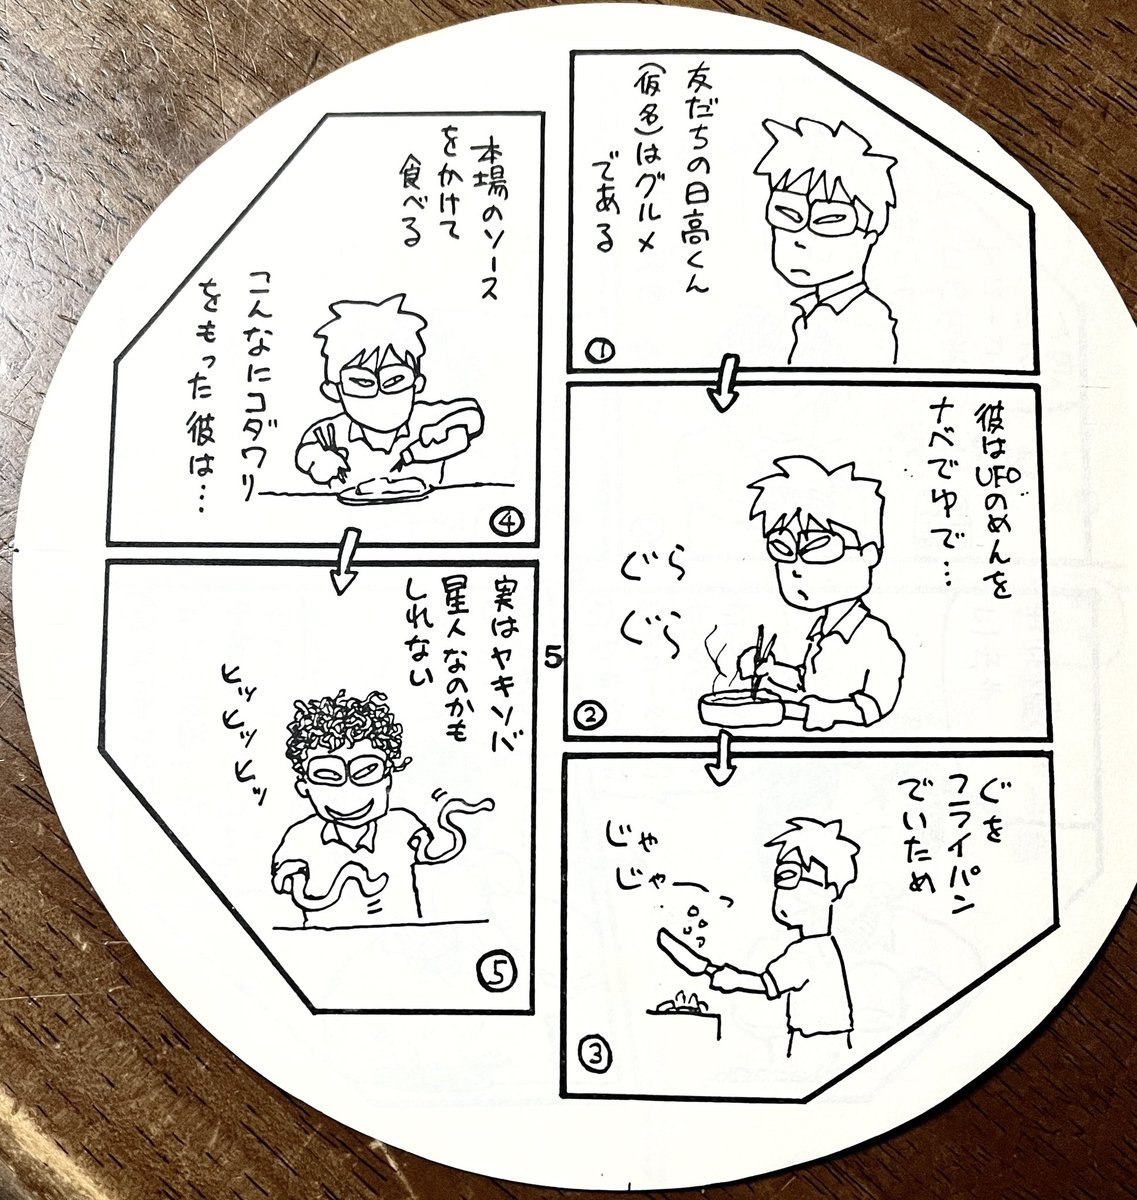 友だちの日高くん
(仮名)はグルメ
である
①
彼はUFOのめんを
ナベでゆで…
ぐら
ぐら
②
ぐを
フライパン
でいため
じゃ
じゃーっ
③
本場のソース
をかけて
食べる
こんなにコダワリ
をもった彼は…
④
実はヤキソバ
星人なのかも
しれない
ヒッ
ヒッ
ヒッ
⑤
5